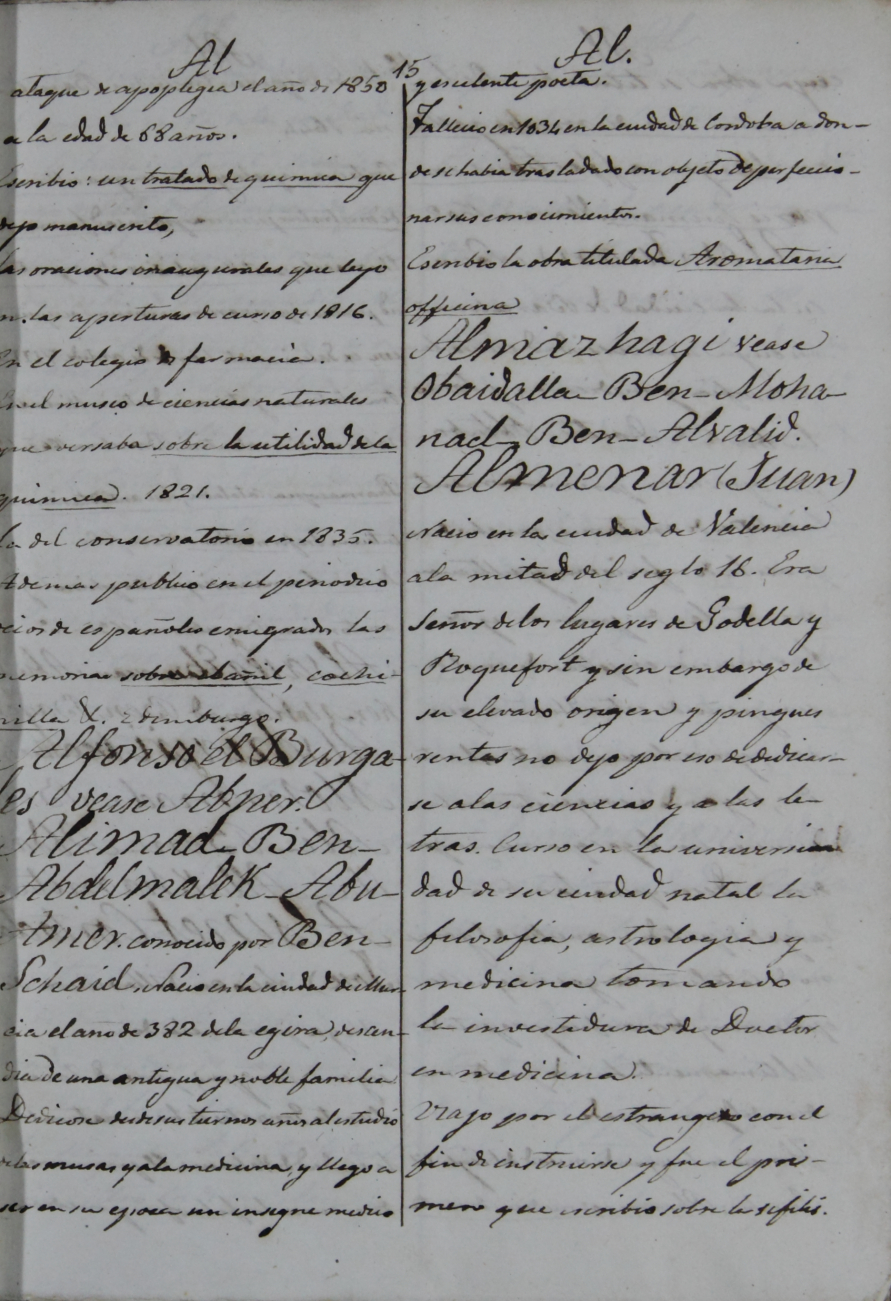 Al
ataque de apoplegia el año de 1850
a la edad de 68 años.
Escribio: un tratado de quimica que
dejo manuscrito,
las oraciones inaugurales que leyo
en las aperturas de curso de 1816.
En el colegio de farmacia.
En el museo de ciencias naturales
que versaba sobre la utilidad de la
quimica. 1821.
la del conservatorio en 1835.
Ademas publico en el periodico
ocios de españoles emigrados las
memorias sobre el añil, cochi-
nilla &.
Alfonso el Burga-
les vease Abner.
Alimad Ben-
Abdelmalek Abu-
Amer. conocido por Ben-
Schaid. Nacio en la ciudad de Mur-
cia el año de 382 de la egira, desen-
dia de una antigua y noble familia
Dedicose desde sus tiernos años al estudio
de las musas y a la medicina, y llego a
ser en su epoca un insigne medico
15
Al.
y escelente poeta.
Fallecio en 1034 en la ciudad de Cordoba a don-
de se habia trasladado con objeto de perfeccio-
nar sus conocimientos.
Escribio la obra titulada Aromataria
officina
Almazhagi vease
Obaidalla Ben-Moha-
nad Ben-Alvalid.
Almenar (Juan)
Nacio en la ciudad de Valencia
a la mitad del seglo 16. Era
señor de los lugares de Godella y
Roquefort y sin embargo de
su elevado origen y pingues
rentas no dejo por eso de dedicar-
se a las ciencias y a las le-
tras. Curso en la universi
dad de su ciudad natal la
filosofia, astrologia y
medicina tomando
la investidura de Doctor
en medicina.
Viajo por el estrangero con el
fin de instruirse y fue el pri-
mero que escribio sobre la sifilis.